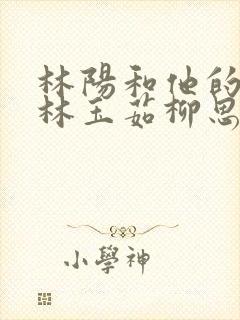 林陽和他的
林玉茹柳思
小學神